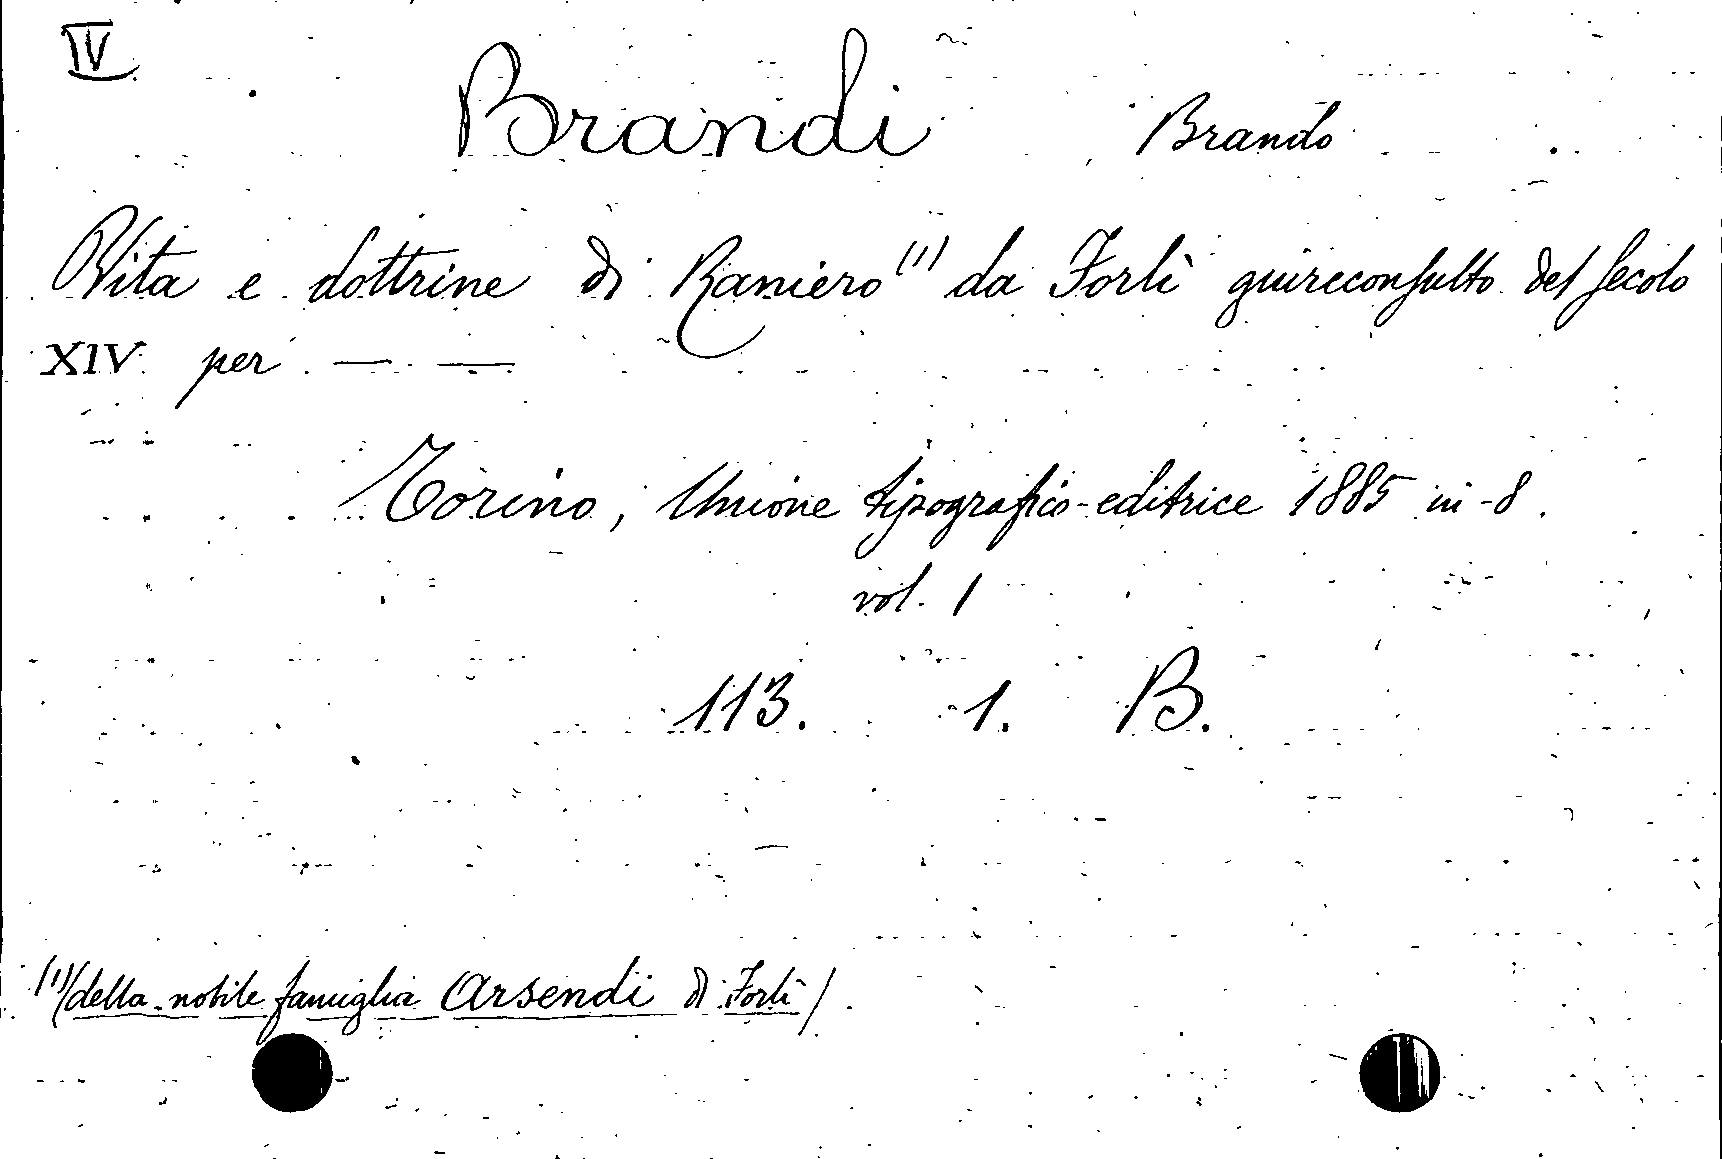 IV
Brandi Brando
Vita e dottrine di Raniero (1) da Forlì guireconsulto del secolo
XIV per — —
Torino, Unione tipografico-editrice 1885 in-8.
vol. 1
113. 1. B.
(1) (della nobile famiglia Arsendi di Forlì)